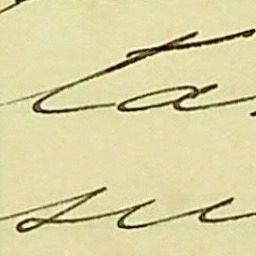 ta
su